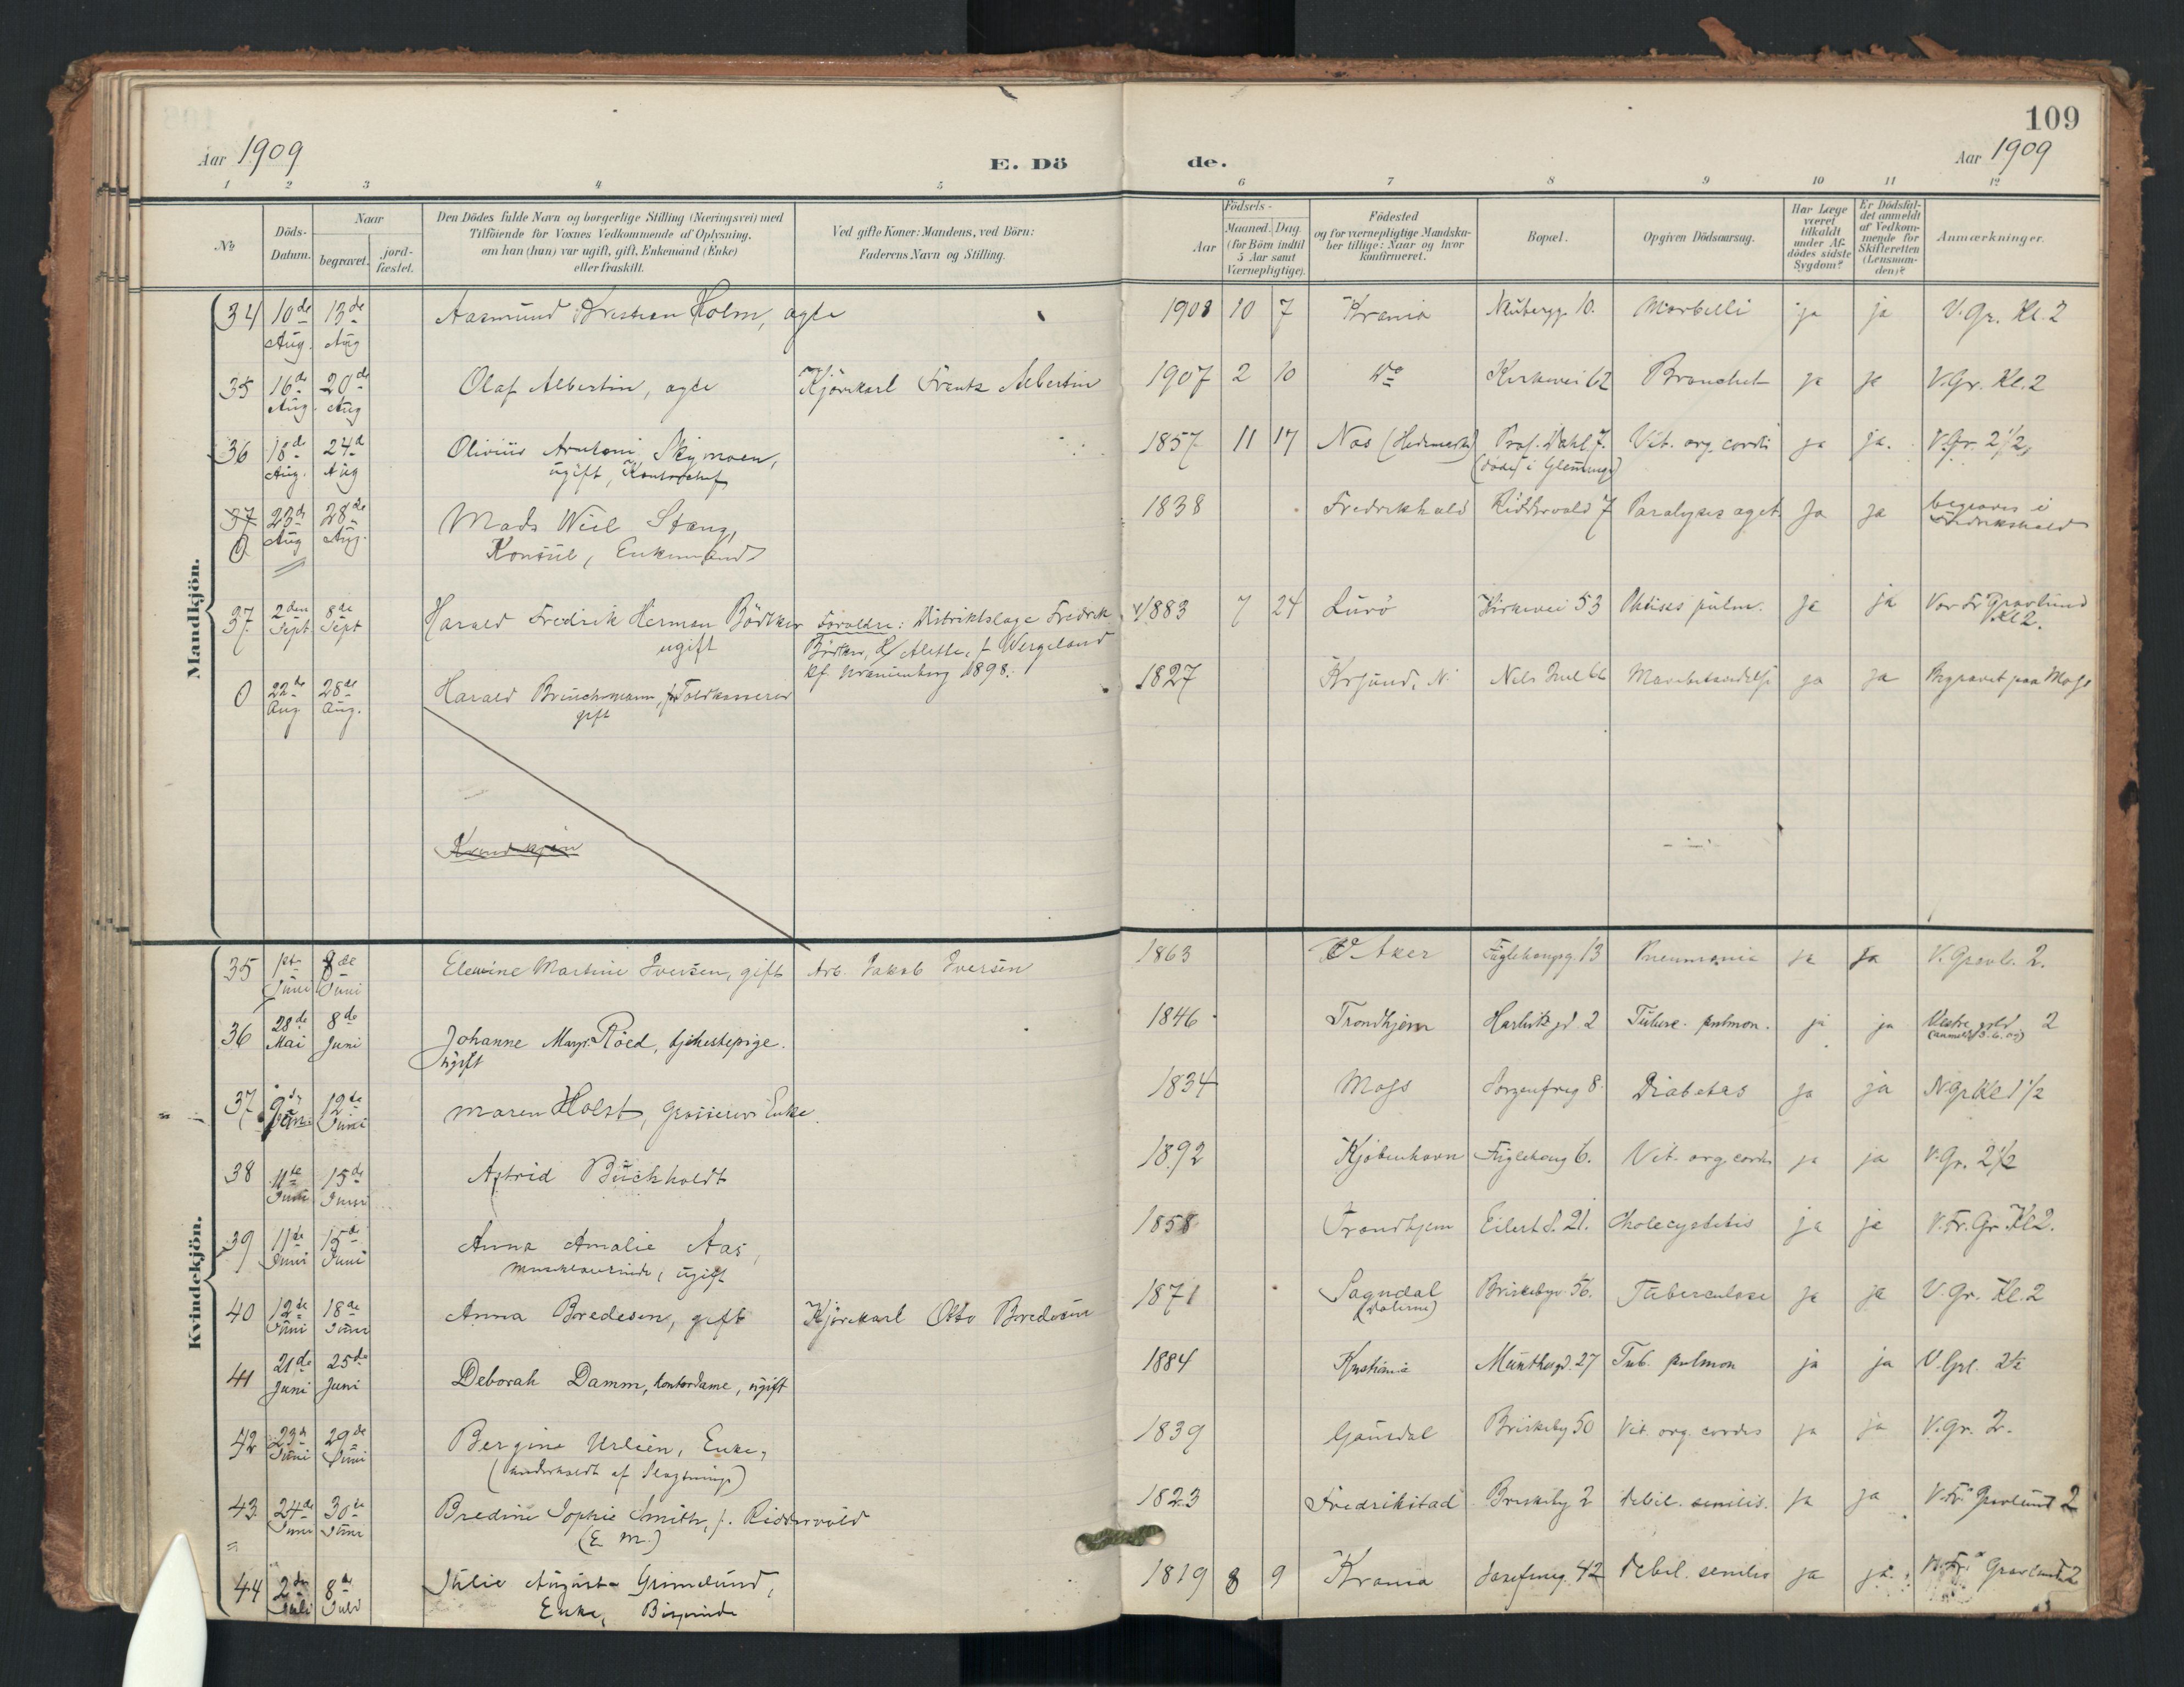 109
Aar 1909
E. Dö de.
Aar 1909
1 2 3 4 5 6 7 8 9 10 11 12
No
Döds-Datum.
Naar
begravet.
jord-fæstet.
Den Dödes fulde Navn og borgerlige Stilling (Næringsvei) med
Tilföiende for Voxnes Vedkommende af Oplysning,
om han (hun) var ugift, gift, Enkemand (Enke)
eller fraskilt.
Ved gifte Koner: Mandens, ved Börn:
Faderens Navn og Stilling.
Födsels-
Aar
Maaned. Dag.
(for Börn indtil
5 Aar samt
Værnepligtige).
Födested
og for værnepligtige Mandska-
ber tillige: Naar og hvor
konfirmeret.
Bopæl.
Opgiven Dödsaarsag.
Har Læge
været
tilkaldt
under Af-
dödes sidste
Sygdom?
Er Dödsfal-
det anmeldt
af Vedkom-
mende for
Skifteretten
(Lensman-
den)?
Anmærkninger.
Mandkjön.
34 10de 13de Aasmund Kristian Holm, ægte 1908 10 7 Krania Neubergg. 10. Morbilli ja ja V. Gr. Kl. 2
Aug. Aug
35 16de 20de Olaf Albertin, ægte Kjörekarl Frents Albertin 1907 2 10 do Kirkevei 62 Bronchit ja ja V. Gr. Kl. 2
Aug. Aug
36 18de 24d Olivius Arntsen Skymoen, 1857 11 17 Nes (Hedemark) Prof. Dahl. 7. Vit. org. cordis ja ja. V. Gr. 2 1/2,
Aug. Aug ugift, Kontorchef (död i Glemminge)
37 23d 28de Mads Wiel Stang, 1838 Fredrikhald Riddervold 7 Paralysis agit. Ja ja begraves i
0 Aug Aug. Konsul, Enkemand Fredrikshald
37. 2den 8de Harald Fredrik Herman Bödtker Forældre: Distriktslæge Fredrik 1883 7 24 Lurö Kirkevei 53 Phtisis pulm. Ja ja Vor Fr Gravlund
Sept. Sept ugift Bödtker, & Alette, f Wergeland Kl 2.
kf. Uranienborg 1898.
0 22de 28de Harald Bruuchmann, Toldkasserer 1827 Krsund. N. Nels Juel 66 ja ja Begravet paa Moss
Aug Aug. gift
Kvindekjön
Kvindekjön.
35 1ste 8de Elevine Martine Iversen, gift Arb. Jakob Iversen 1863 V Aker Fuglehaugg. 13 Pneumonia ja ja V. Gravl. 2.
Juni Juni
36 28de 8de Johanne Margr. Röed, tjenestepige. 1846 Trondhjem Harbitz gd 2 Tuberc. pulmon. ja ja Vestre grld 2
Mai Juni ugift (anmeldt 3.6.09)
37 9de 12te Maren Holst, Grosserers Enke. 1834 Moss Sorgenfrig 8. Diabetes ja ja N Gr Kl 1 1/2
Juni Juni
38 11te 15de Astrid Buchholdt 1892 Kjöbenhavn Fuglehaug 6. Vit. org. cordis ja ja V. Gr. 2 1/2
Juni Juni
39 11te 15de Anna Amalie Aas, 1858 Trondhjem Eilert S. 21. Cholecystitis ja ja V. Fr. Gr. Kl 2.
Juni Juni Musiklærerinde, ugift
40 12te 18de Anna Bredesen, gift Kjörekarl Otto Bredesen 1871 Sagndal Briskebyv. 56. Tuberculose ja ja V. Gr. Kl. 2
Juni Juni (Dalerne)
41 21de 25de Deborah Damm, kontordame, ugift 1884 Kristiania Munthesgd. 27 Tub. pulmon ja ja V. Grl. 2 1/2
Juni Juni
42 23d 29de Bergine Urlien, Enke, 1839 Gausdal Briskeby 50 Vit. org. cordis ja ja V. Gr. 2.
Juni Juni (underholdt af Slægtninge)
43. 24de 30te Bredine Sophie Smith, f. Riddervold 1823 Fredrikstad Briskeby 2 Debil. senilis. ja ja V. Fr. Gravlund 2
Juni Juni (E. M.)
44 2den 8de Julie Augusta Grimelund, 1819 8 9 Krania Josefineg. 42 Debil. senilis ja ja. V. Fr. Gravlund 2
Juli Juli Enke, Bispinde